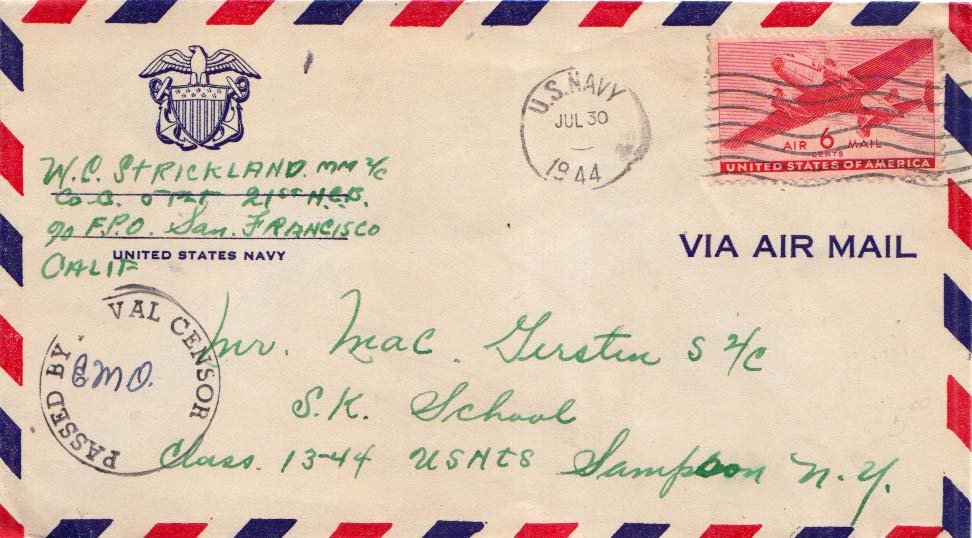 W.C. STRICKLAND MM 2/c
Co B. 5 PLT 21ST N.C.B.
℅ F.P.O. San. FRANCISCO
UNITED STATES NAVY
CALIF
U.S. NAVY
JUL 30
1944
AIR 6 MAIL
CENTS
UNITED STATES OF AMERICA
VIA AIR MAIL
PASSED BY VAL CENSOR
Mr. Mac. Gersten S 2/c
S.K. School
Class. 13-44 USNTS Sampson N.Y.